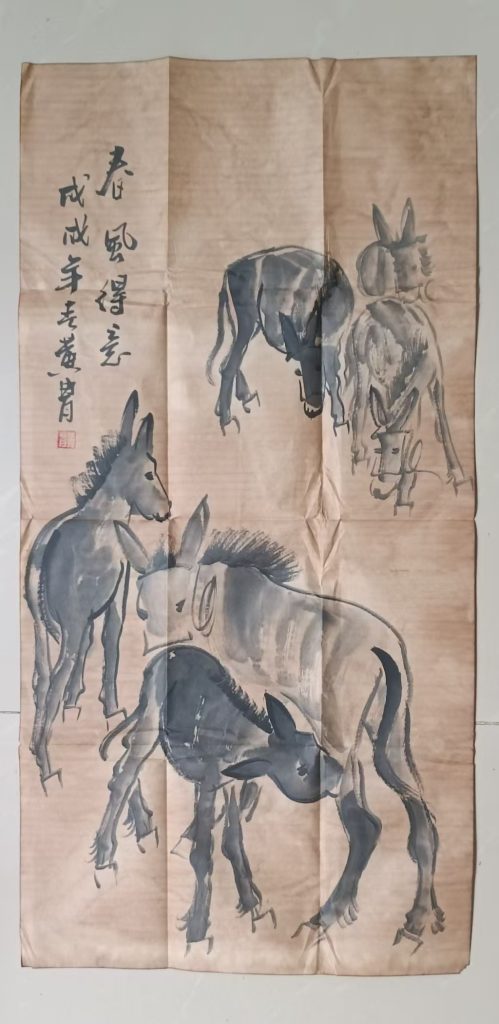 春風得意
戊戌年春黄胄